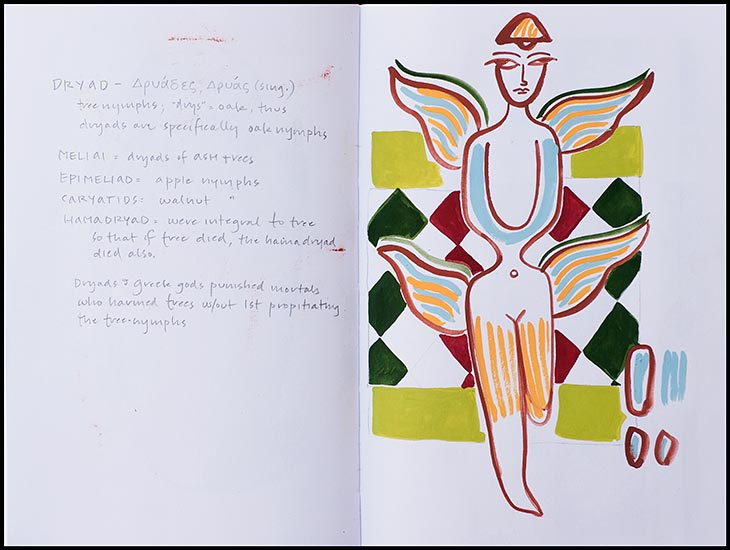 DRYAD – Δρυάδες, Δρυάς (sing.)
tree nymphs; "drys" = oak, thus
dryads are specifically oak nymphs
MELIAI = dryads of ASH trees
EPIMELIAD = apple nymphs
CARYATIDS = walnut "
HAMADRYAD = were integral to tree
so that if tree died, the hamadryad
died also.
Dryads & Greek gods punished mortals
who harmed trees w/out 1st propitiating
the tree-nymphs